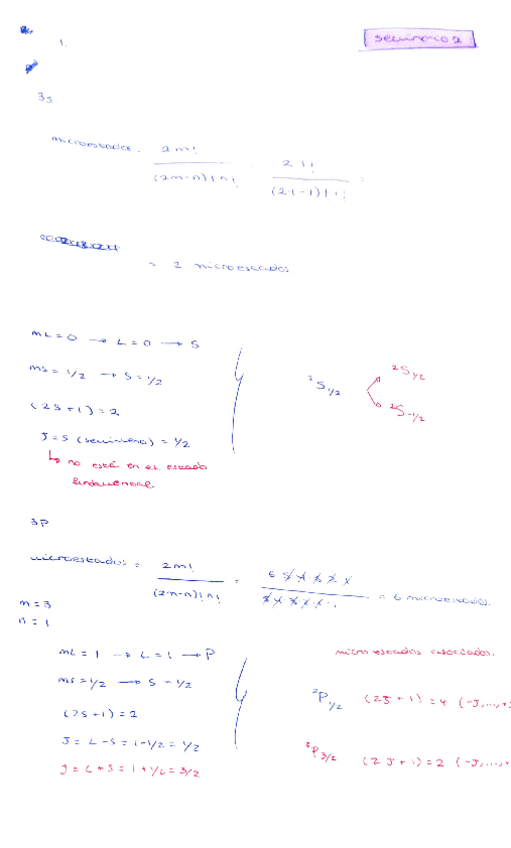 seminario 2
1.
3s
microestados: 2m! / (2m-n)! n! = 2·1! / (2·1-1)! 1! =
= 2 microestados
mL = 0 → L = 0 → S
ms = 1/2 → S = 1/2
(2S+1) = 2
J = S (semilleno) = 1/2
↳ no está en el estado
fundamental.
²S1/2
²S1/2
²S-1/2
3P
microestados = 2m! / (2m-n)! n! = 6 5 4 3 2 1 / 5 4 3 2 1 · 1 = 6 microestados.
m = 3
n = 1
mL = 1 → L = 1 → P
ms = 1/2 → S = 1/2
(2S+1) = 2
J = L - S = 1 - 1/2 = 1/2
J = L + S = 1 + 1/2 = 3/2
microestados asociados.
²P1/2 (2J + 1) = 4 (-J,...,+
²P3/2 (2J + 1) = 2 (-J,...,+